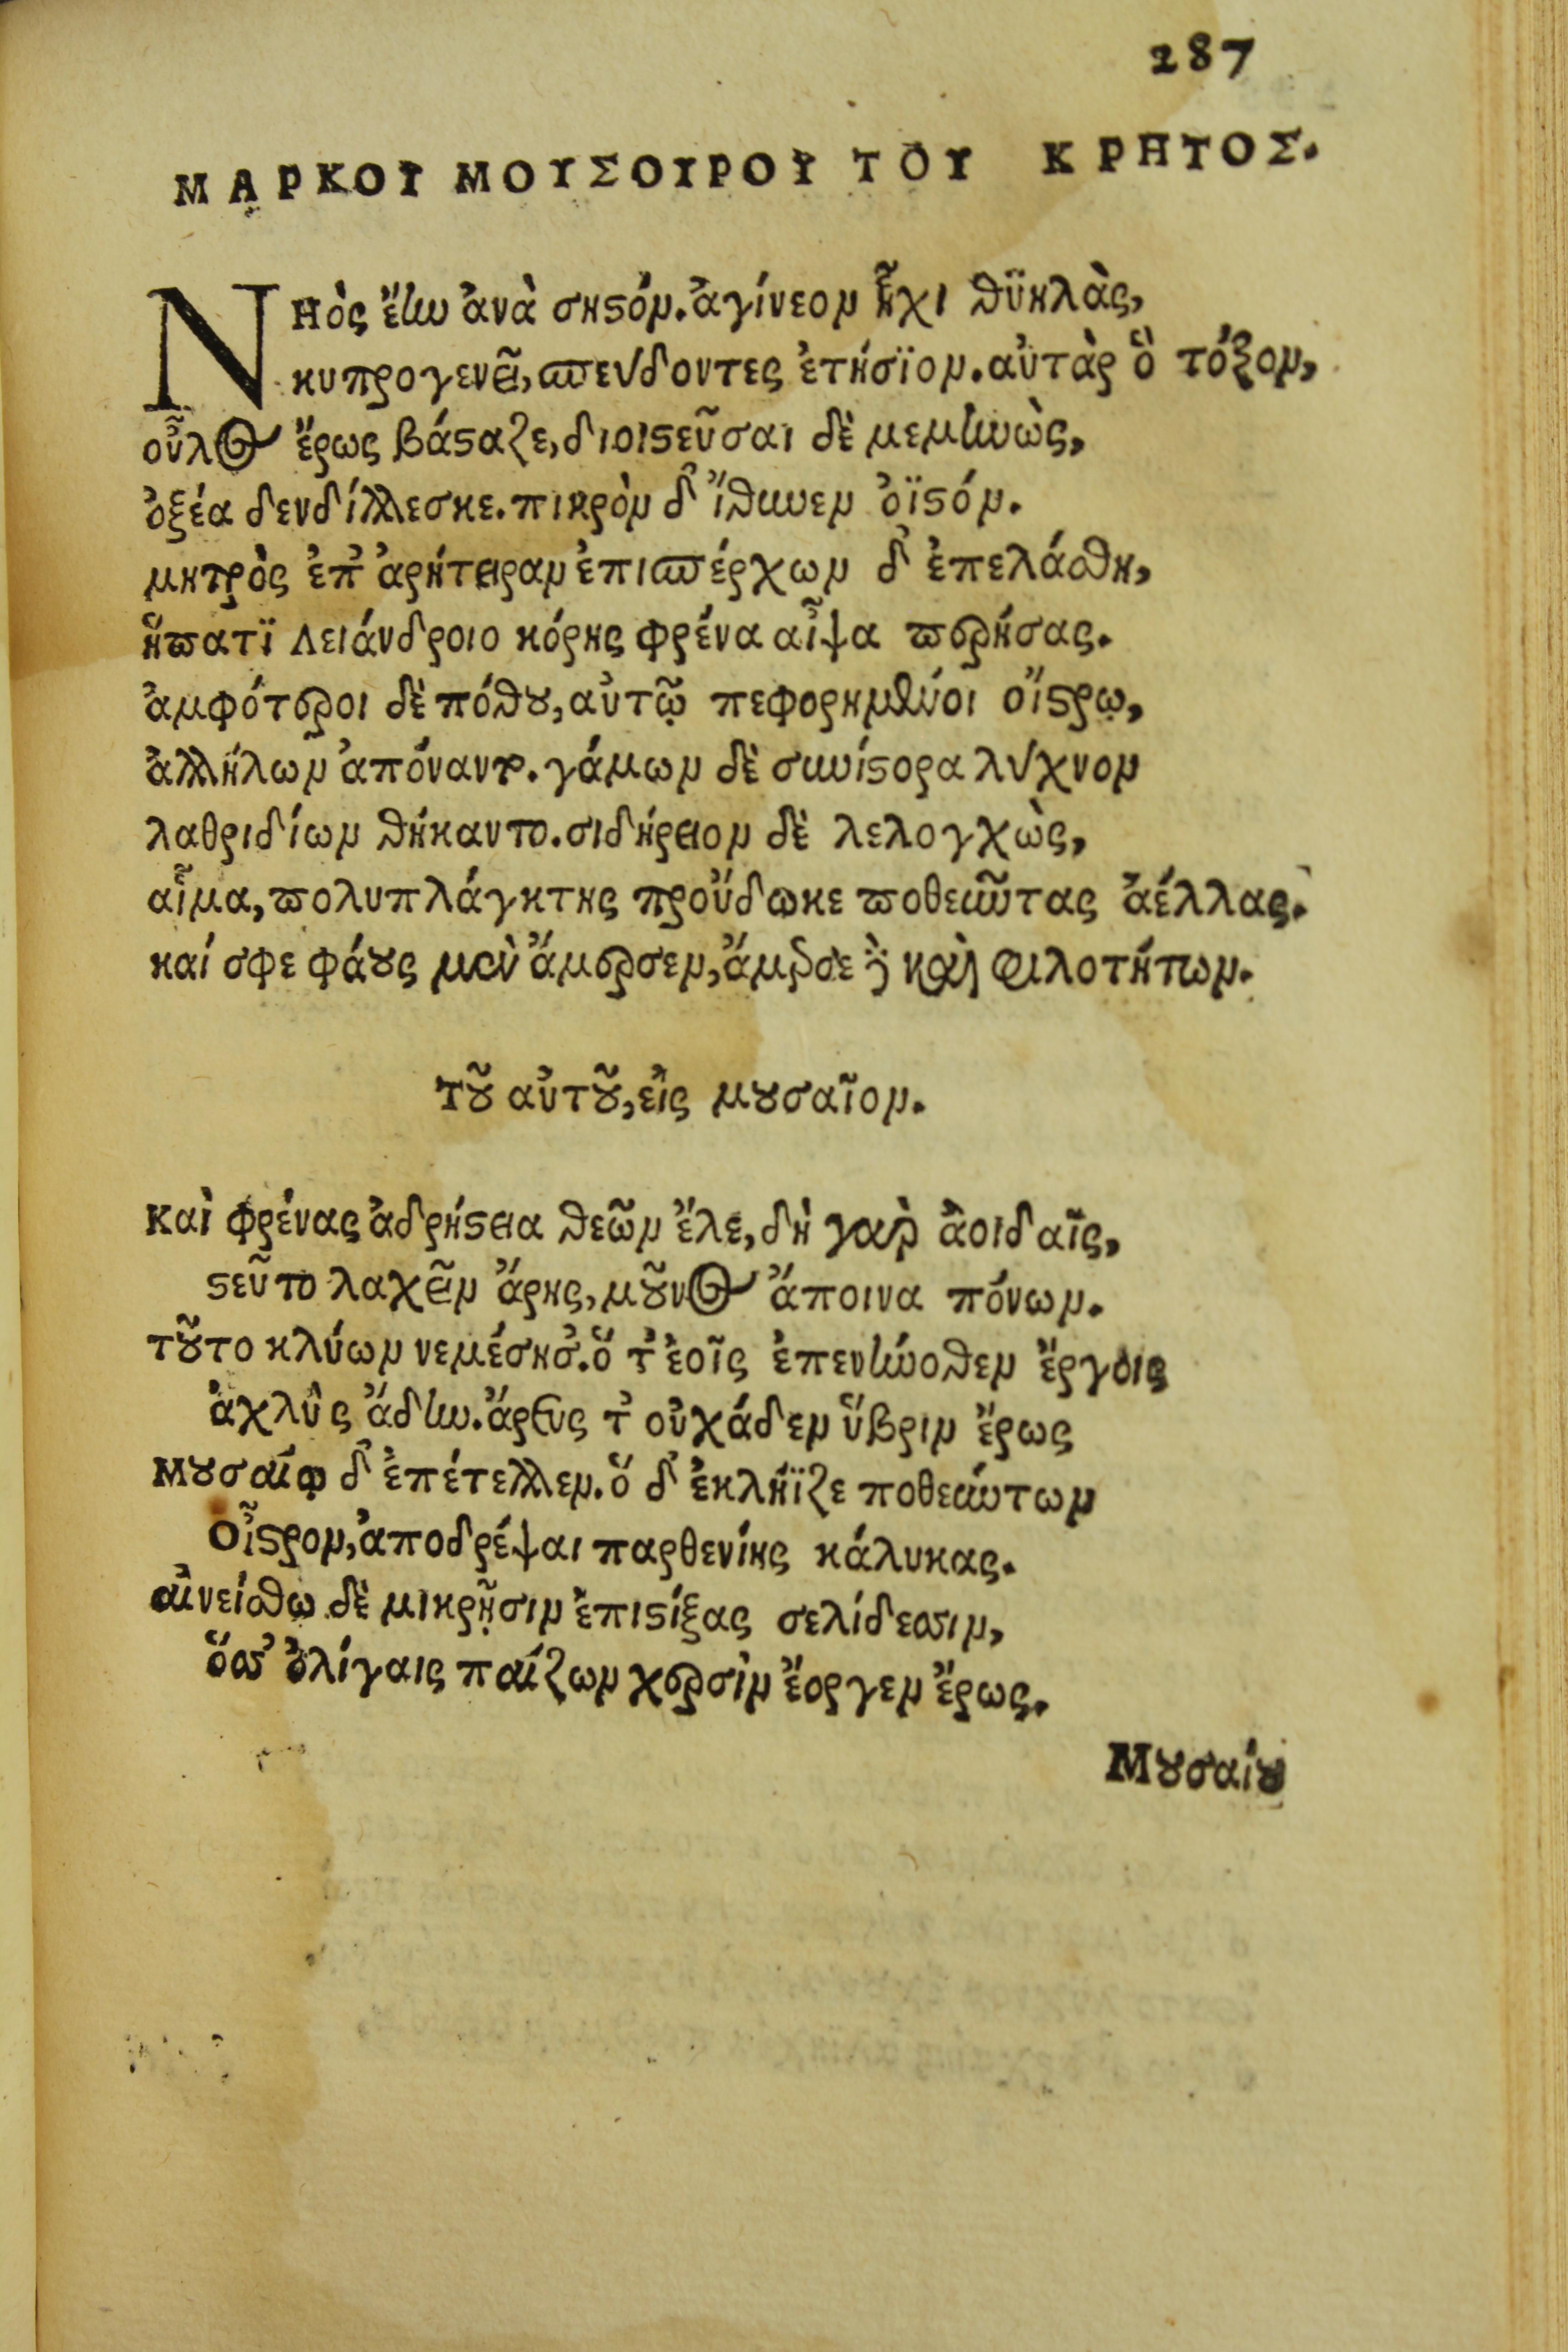 287
ΜΑΡΚΟΥ ΜΟΥΣΟΥΡΟΥ ΤΟΥ ΚΡΗΤΟΣ.
Νηὸς ἔην ἀνὰ σηστόν. ἀγίνεον ἧχι θϋηλὰς,
κυπρογενεῖ, σπεύδοντες ἐτήσϊον. αὐτὰρ ὃ τόξον,
οὖλος ἔρως βάσταζε, διοϊστεῦσαι δὲ μεμηνὼς,
ὀξέα δενδίλλεσκε. πικρὸν δ' ἴθυνεν ὀϊστόν.
μητρὸς ἐπ' ἀρήτειραν ἐπισπέρχων δ' ἐπελάσθη,
ἥπατϊ Λειάνδροιο κόρης φρένα αἶψα περήσας.
ἀμφότεροι δὲ πόθου, αὐτῷ πεφορημένοι οἴστρῳ,
ἀλλήλων ἀπόναντο. γάμων δὲ συνίστορα λύχνον
λαθριδίων θήκαντο. σιδήρειον δὲ λελογχὼς,
αἷμα, πολυπλάγκτης προὔδωκε ποθεῦντας ἀέλλας.
καί σφε φάους μὲν ἄμερσεν, ἄμερσε δὲ καὶ φιλοτήτων.
Τοῦ αὐτοῦ, εἰς μουσαῖον.
Καὶ φρένας ἀδρήστεια θεῶν ἕλε, δὴ γὰρ ἀοιδαῖς,
στεῦτο λαχεῖν ἄρης, μοῦνος ἄποινα πόνων.
τοῦτο κλύων νεμέσησ'. ὅ τ' ἑοῖς ἐπενήνοθεν ἔργοις
ἀχλὺς ἄδην. ἄρευς τ' οὐχάδεν ὕβριν ἔρως
Μουσαίῳ δ' ἐπέτελλεν. ὅ δ' ἐκλήϊζε ποθεύντων
Οἶστρον, ἀποδρέψαι παρθενίης κάλυκας.
αἰνείσθω δὲ μικρῇσιν ἐπιστίξας σελίδεσσιν,
ὅσσ' ὀλίγαις παίζων χερσὶν ἔοργεν ἔρως.
Μουσαίου